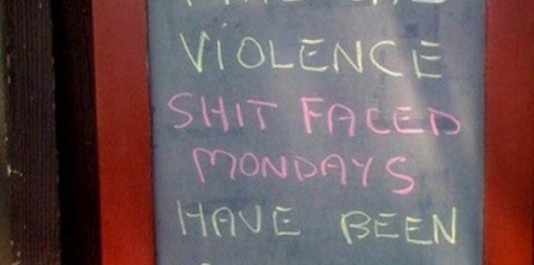 VIOLENCE
SHIT FACED
MONDAYS
HAVE BEEN